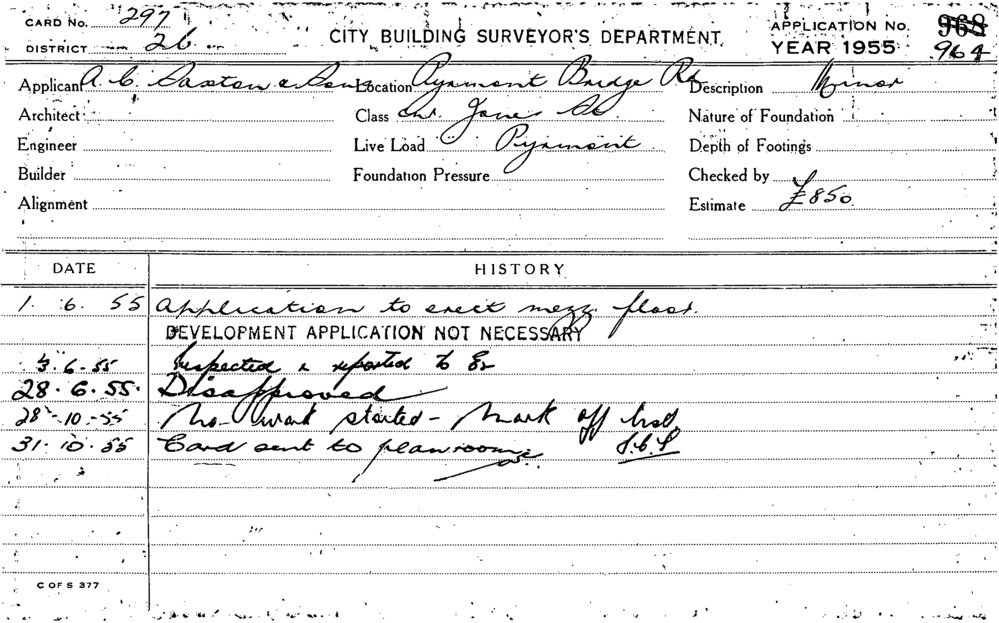 CARD No. 297
DISTRICT 26
CITY BUILDING SURVEYOR'S DEPARTMENT
APPLICATION No. 968
YEAR 1955 964
Applicant A. C. Saxton & Sons Location Pyrmont Bridge Rd Description Minor
Architect Class cnr. Jones St Nature of Foundation
Engineer Live Load Pyrmont Depth of Footings
Builder Foundation Pressure Checked by
Alignment Estimate £850
DATE HISTORY
1. 6. 55 Application to erect mezz. floor.
DEVELOPMENT APPLICATION NOT NECESSARY
3.6.55 Inspected & reported to
28.6.55. Disapproved
28-10-55 No work started - Mark off
31.10.55 Card sent to planroom
C OF S 377